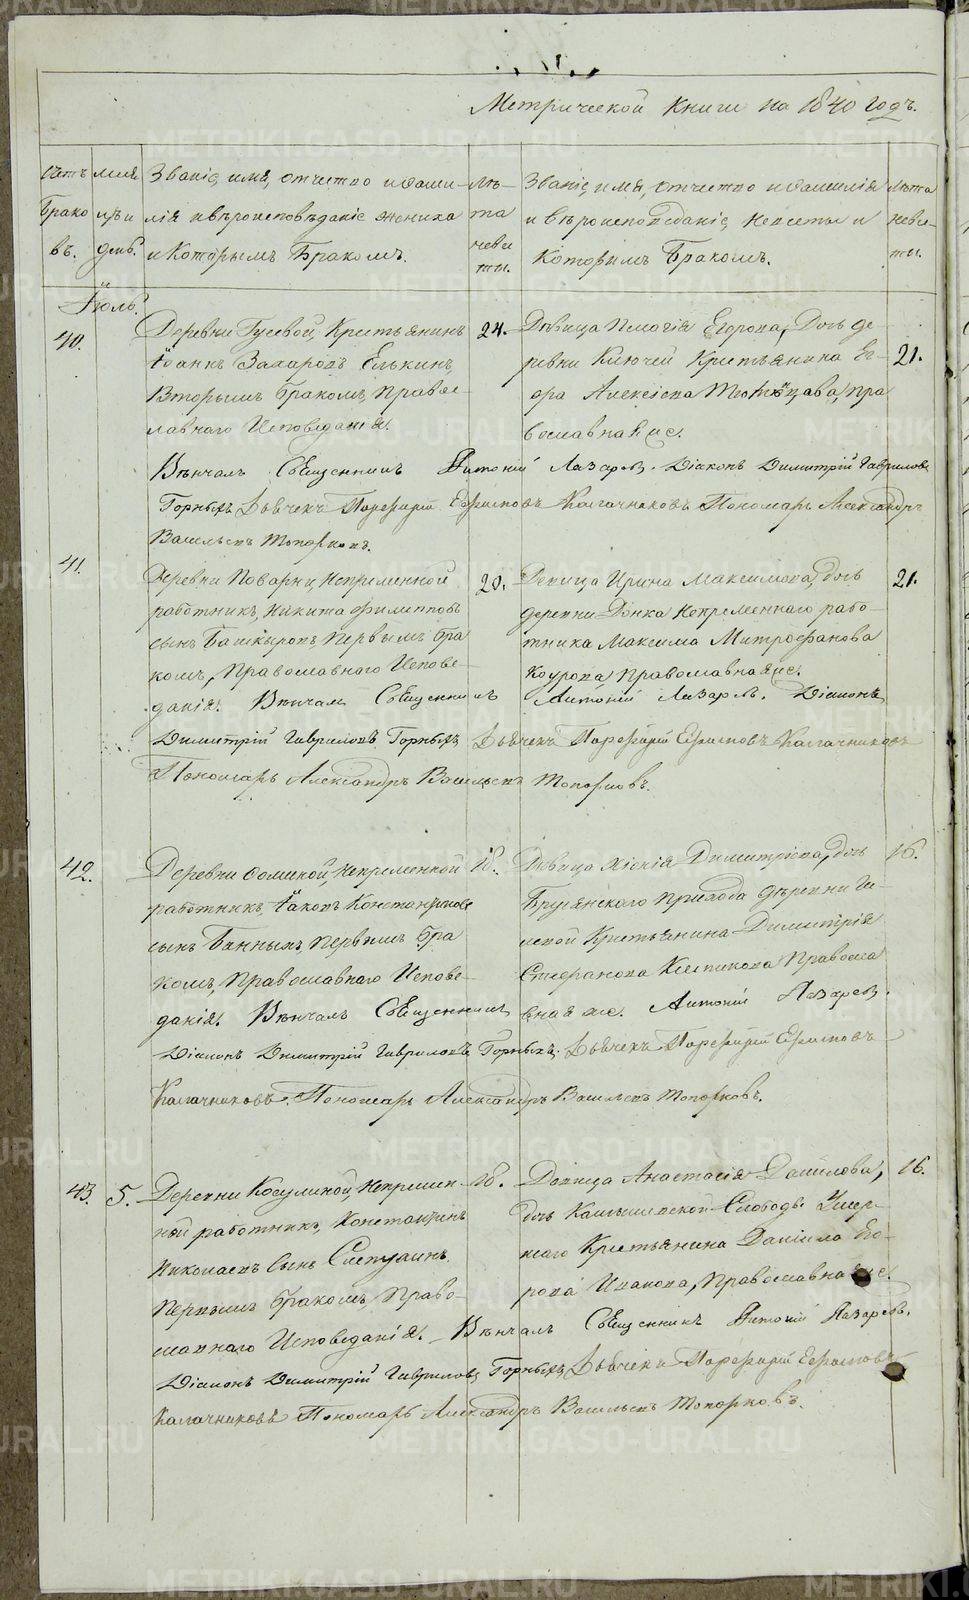 Метрической Книги на 1840 годъ.
Счетъ Брако въ.
мѣся цъ и днь.
Званіе, имя, отчество и фами-
лія и вѣроисповѣданіе жениха
и Которымъ Бракомъ.
Лѣ-
та
Званіе, имя, отчество и фамилія
и вѣроисповѣданіе, невесты и
Которымъ Бракомъ.
Лѣта
неве-
ты.
Іюль.
40.
Деревни Гусевой, Крестьянинъ
Іоаннъ Захаровъ Елькинъ,
Вторымъ бракомъ, Правос-
лавнаго Исповеданія.
24.
Дѣвица Пелагія Егорова, Дочь де-
ревни Ключей Крестьянина Ег-
ора Алексѣева пра
вославная же.
21.
Вѣнчалъ Священникъ Антоній Лазаревъ. Діаконъ Димитрій Гавриловъ
Горныхъ Дьячекъ Порфирій Ефимовъ Калачниковъ Пономарь Александръ
Васильевъ Топорковъ.
41.
Деревни Поварни, Непременной
работникъ, Никита Филипповъ
сынъ Башкыровъ, Первымъ бра
комъ, Православнаго Испове-
20.
Девица Ирина Максимова, дочь
деревни Непременнаго рабо-
тника Максима Митрофанова
Коурова Православная же.
21.
данія. Вѣнчалъ Священникъ Антоній Лазаревъ. Діаконъ
Димитрій Гавриловъ Горныхъ Дьячекъ Порфирій Ефимовъ Калачниковъ
Пономарь Александръ Васильевъ Топорковъ.
42.
Деревни Фоминой, Непременной
работникъ, Іаковъ Константиновъ
сынъ Банныхъ, Первымъ бра
комъ, Православнаго Испове-
18.
Дѣвица Димитріева, дочь
Бруянского Прихода деревни Ги-
левой Крестьянина Димитрія
Стефанова Правосла
16.
данія. Вѣнчалъ Священникъ вная же. Антоній Лазаревъ.
Діаконъ Димитрій Гавриловъ Горныхъ. Дьячекъ Порфирій Ефимовъ
Калачниковъ. Пономарь Александръ Васильевъ Топорковъ.
43.
5.
Деревни Косулиной, Непремен-
ной работникъ, Константинъ
Николаевъ Сынъ
Первымъ бракомъ, Право-
славнаго Исповеданія.
18.
Девица Анастасія Данилова,
дочь Камышевской Слободы Умер-
шаго Крестьянина Даніила
Иванова, Православная же.
16.
Вѣнчалъ Священникъ Антоній Лазаревъ.
Діаконъ Димитрій Гавриловъ Горныхъ, Дьячекъ Порфирій Ефимовъ
Калачниковъ Пономарь Александръ Васильевъ Топорковъ.
METRIKI.GASO-URAL.RU